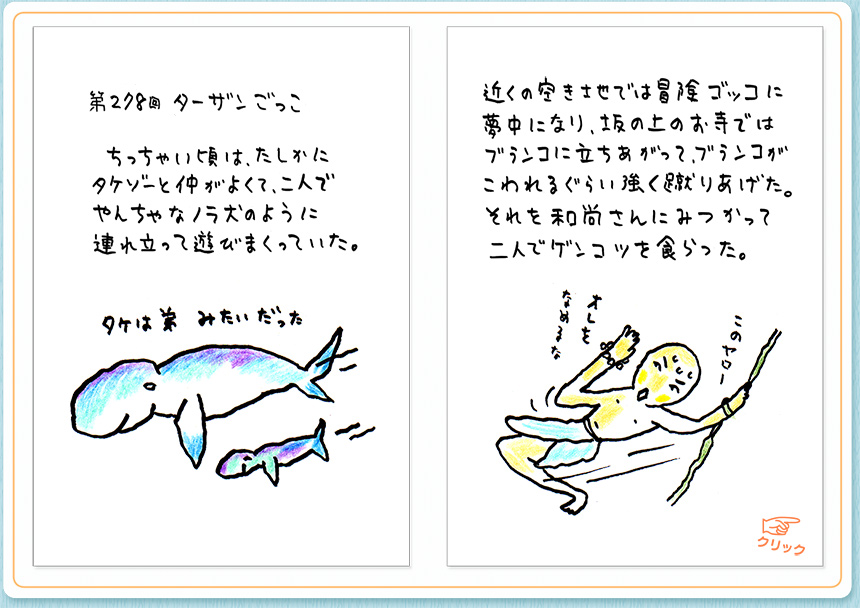 第278回 ターザンごっこ
ちっちゃい頃は、たしかに
タケゾーと仲がよくて、二人で
やんちゃなノラ犬のように
連れ立って遊びまくっていた。
タケは弟 みたいだった
近くの空き地では冒険ゴッコに
夢中になり、坂の上のお寺では
ブランコに立ちあがって、ブランコが
こわれるぐらい強く蹴りあげた。
それを和尚さんにみつかって
二人でゲンコツを食らった。
オレを
なめるな
このヤロー
クリック